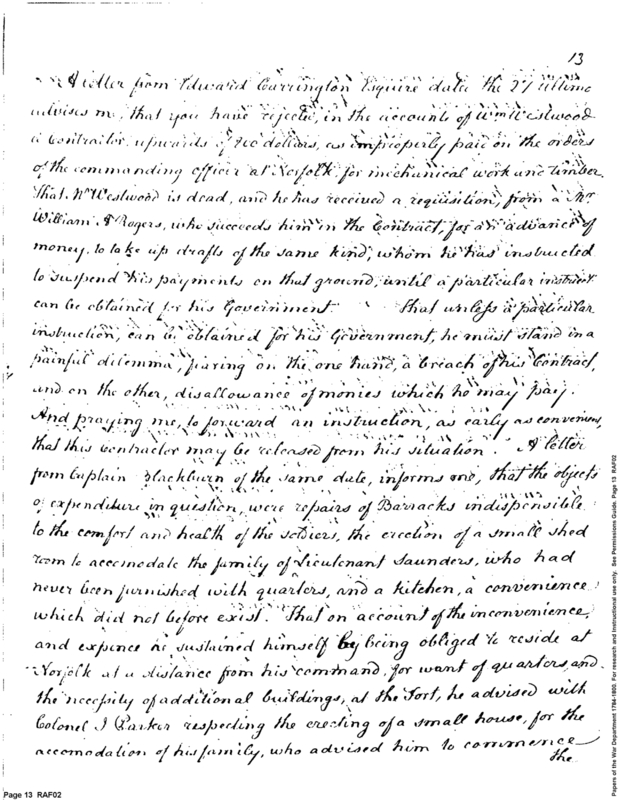 13
A letter from Edward Carrington Esquire dated the 27 ultimo
advises me, that you have rejected, in the accounts of Wm Westwood
a Contractor, upwards of dollars, as improperly paid on the orders
of the commanding officer at Norfolk for mechanical work and timber
That Mr Westwood is dead, and he has received a requisition, from a Mr
William Rogers, who succeeds him in the Contract, for an advance of
money, to take up drafts of the same kind, whom he has instructed
to suspend his payments on that ground, until a particular instruct.
can be obtained for his Government. That unless a particular
instruction, can be obtained for his Government, he must stand in a
painful dilemma, fearing on the one hand, a breach of his Contract,
and on the other, disallowance of monies which he may pay.
And praying me, to forward an instruction, as early as convenient,
that this Contractor may be released from his situation. A letter
from Captain Blackburn of the same date, informs me, that the objects
of expenditure in question, were repairs of Barracks indispensible
to the comfort and health of the soldiers, the erection of a small shed
room to accomodate the family of Lieutenant Saunders, who had
never been furnished with quarters, and a kitchen, a convenience
which did not before exist. That on account of the inconvenience,
and expence he sustained himself by being obliged to reside at
Norfolk at a distance from his command, for want of quarters, and
the necessity of additional buildings, at the Fort, he advised with
Colonel J Parker respecting the erecting of a small house, for the
accomodation of his family, who advised him to commence
the
Page 13 RAF02
Papers of the War Department 1784-1800. For research and instructional use only. See Permissions Guide. Page 13 RAF02